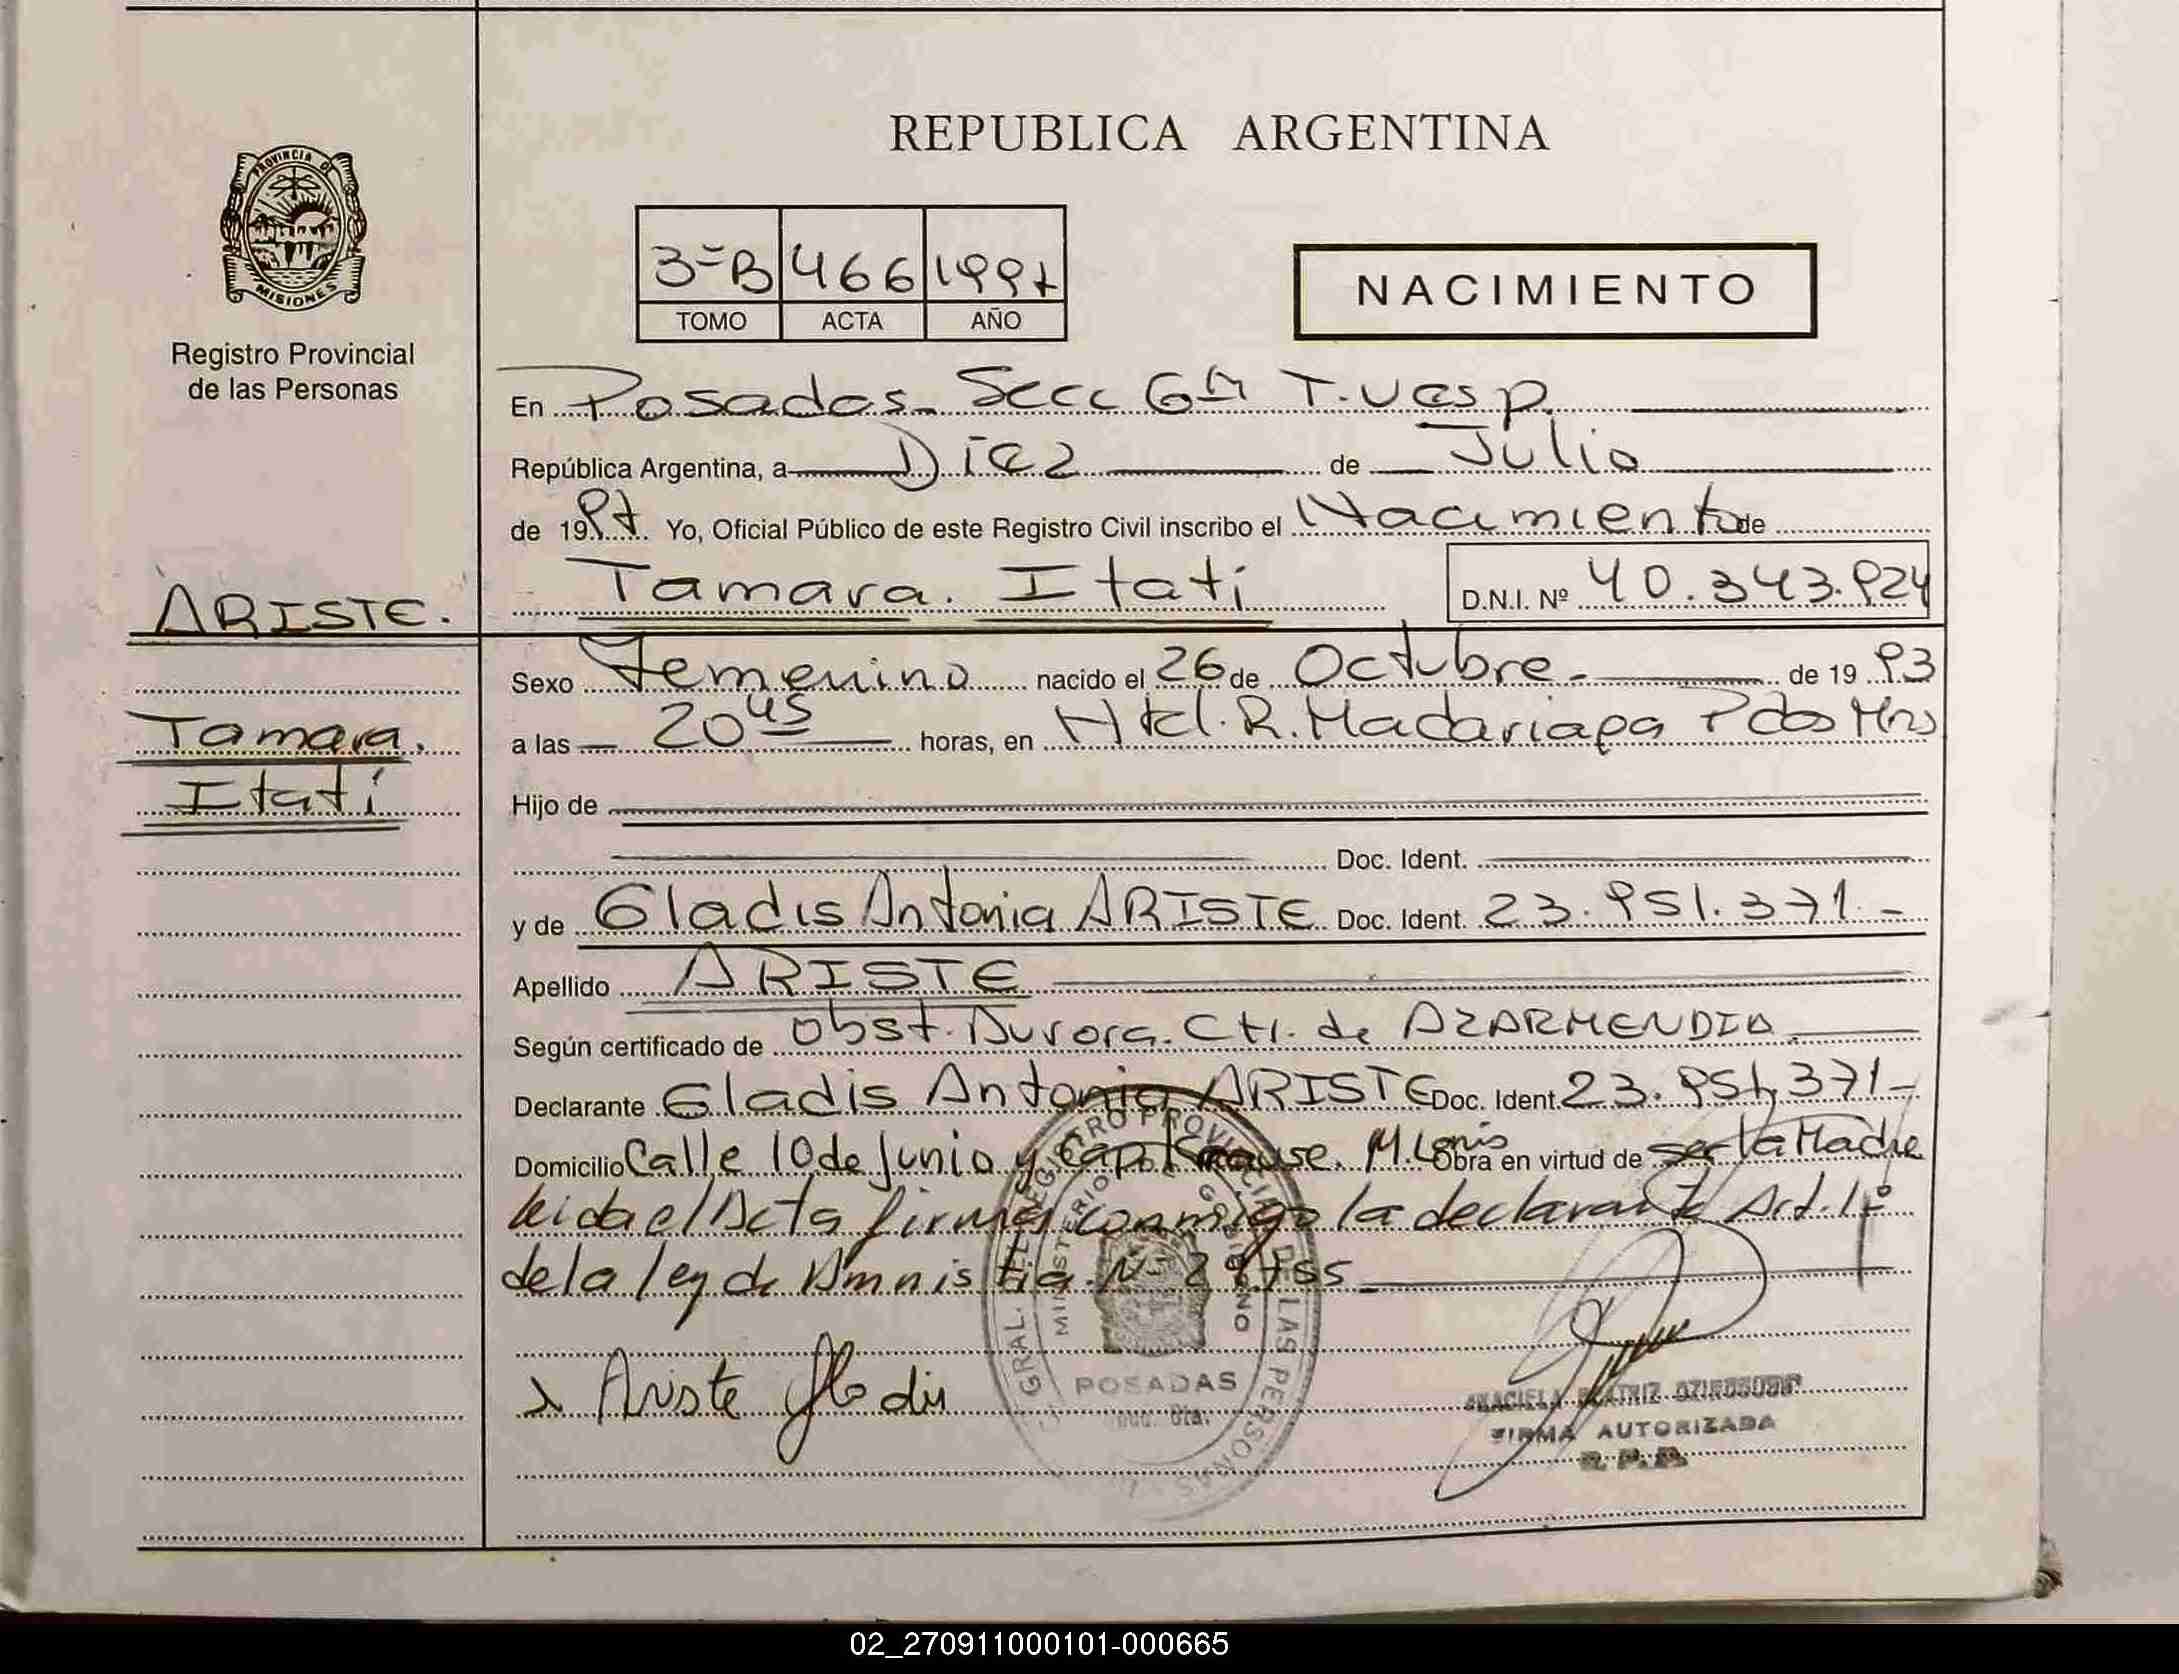 REPUBLICA ARGENTINA
PROVINCIA DE
MISIONES
Registro Provincial
de las Personas
3ºB 466 1997
TOMO ACTA AÑO
NACIMIENTO
En Posadas Secc 6ta T. Vesp.
República Argentina, a Diez de Julio
de 1997 Yo, Oficial Público de este Registro Civil inscribo el Nacimiento de
ARISTE.
Tamara. Itatí D.N.I. Nº 40.343.924
Tamara.
Itatí
Sexo Femenino nacido el 26 de Octubre - de 1993
a las 20 45 horas, en Htal. R. Madariaga Pdas Mns
Hijo de
Doc. Ident.
y de Gladis Antonia ARISTE Doc. Ident. 23.951.371 -
Apellido ARISTE
Según certificado de Obst. Aurora. Ctr. de AZARMENDIA
Declarante Gladis Antonia ARISTE Doc. Ident. 23.951.371 -
Domicilio Calle 10 de Junio y Cap. Krause. M. Lanús Obra en virtud de ser la Madre
leida el Acta firma conmigo la declarante Art. 1º
de la ley de Amnistia Nº 24755
x Ariste Gladis
REGISTRO PROVINCIAL DE LAS PERSONAS
MINISTERIO GOBIERNO
POSADAS
BEATRIZ
FIRMA AUTORIZADA
R. P. P.
02_270911000101-000665